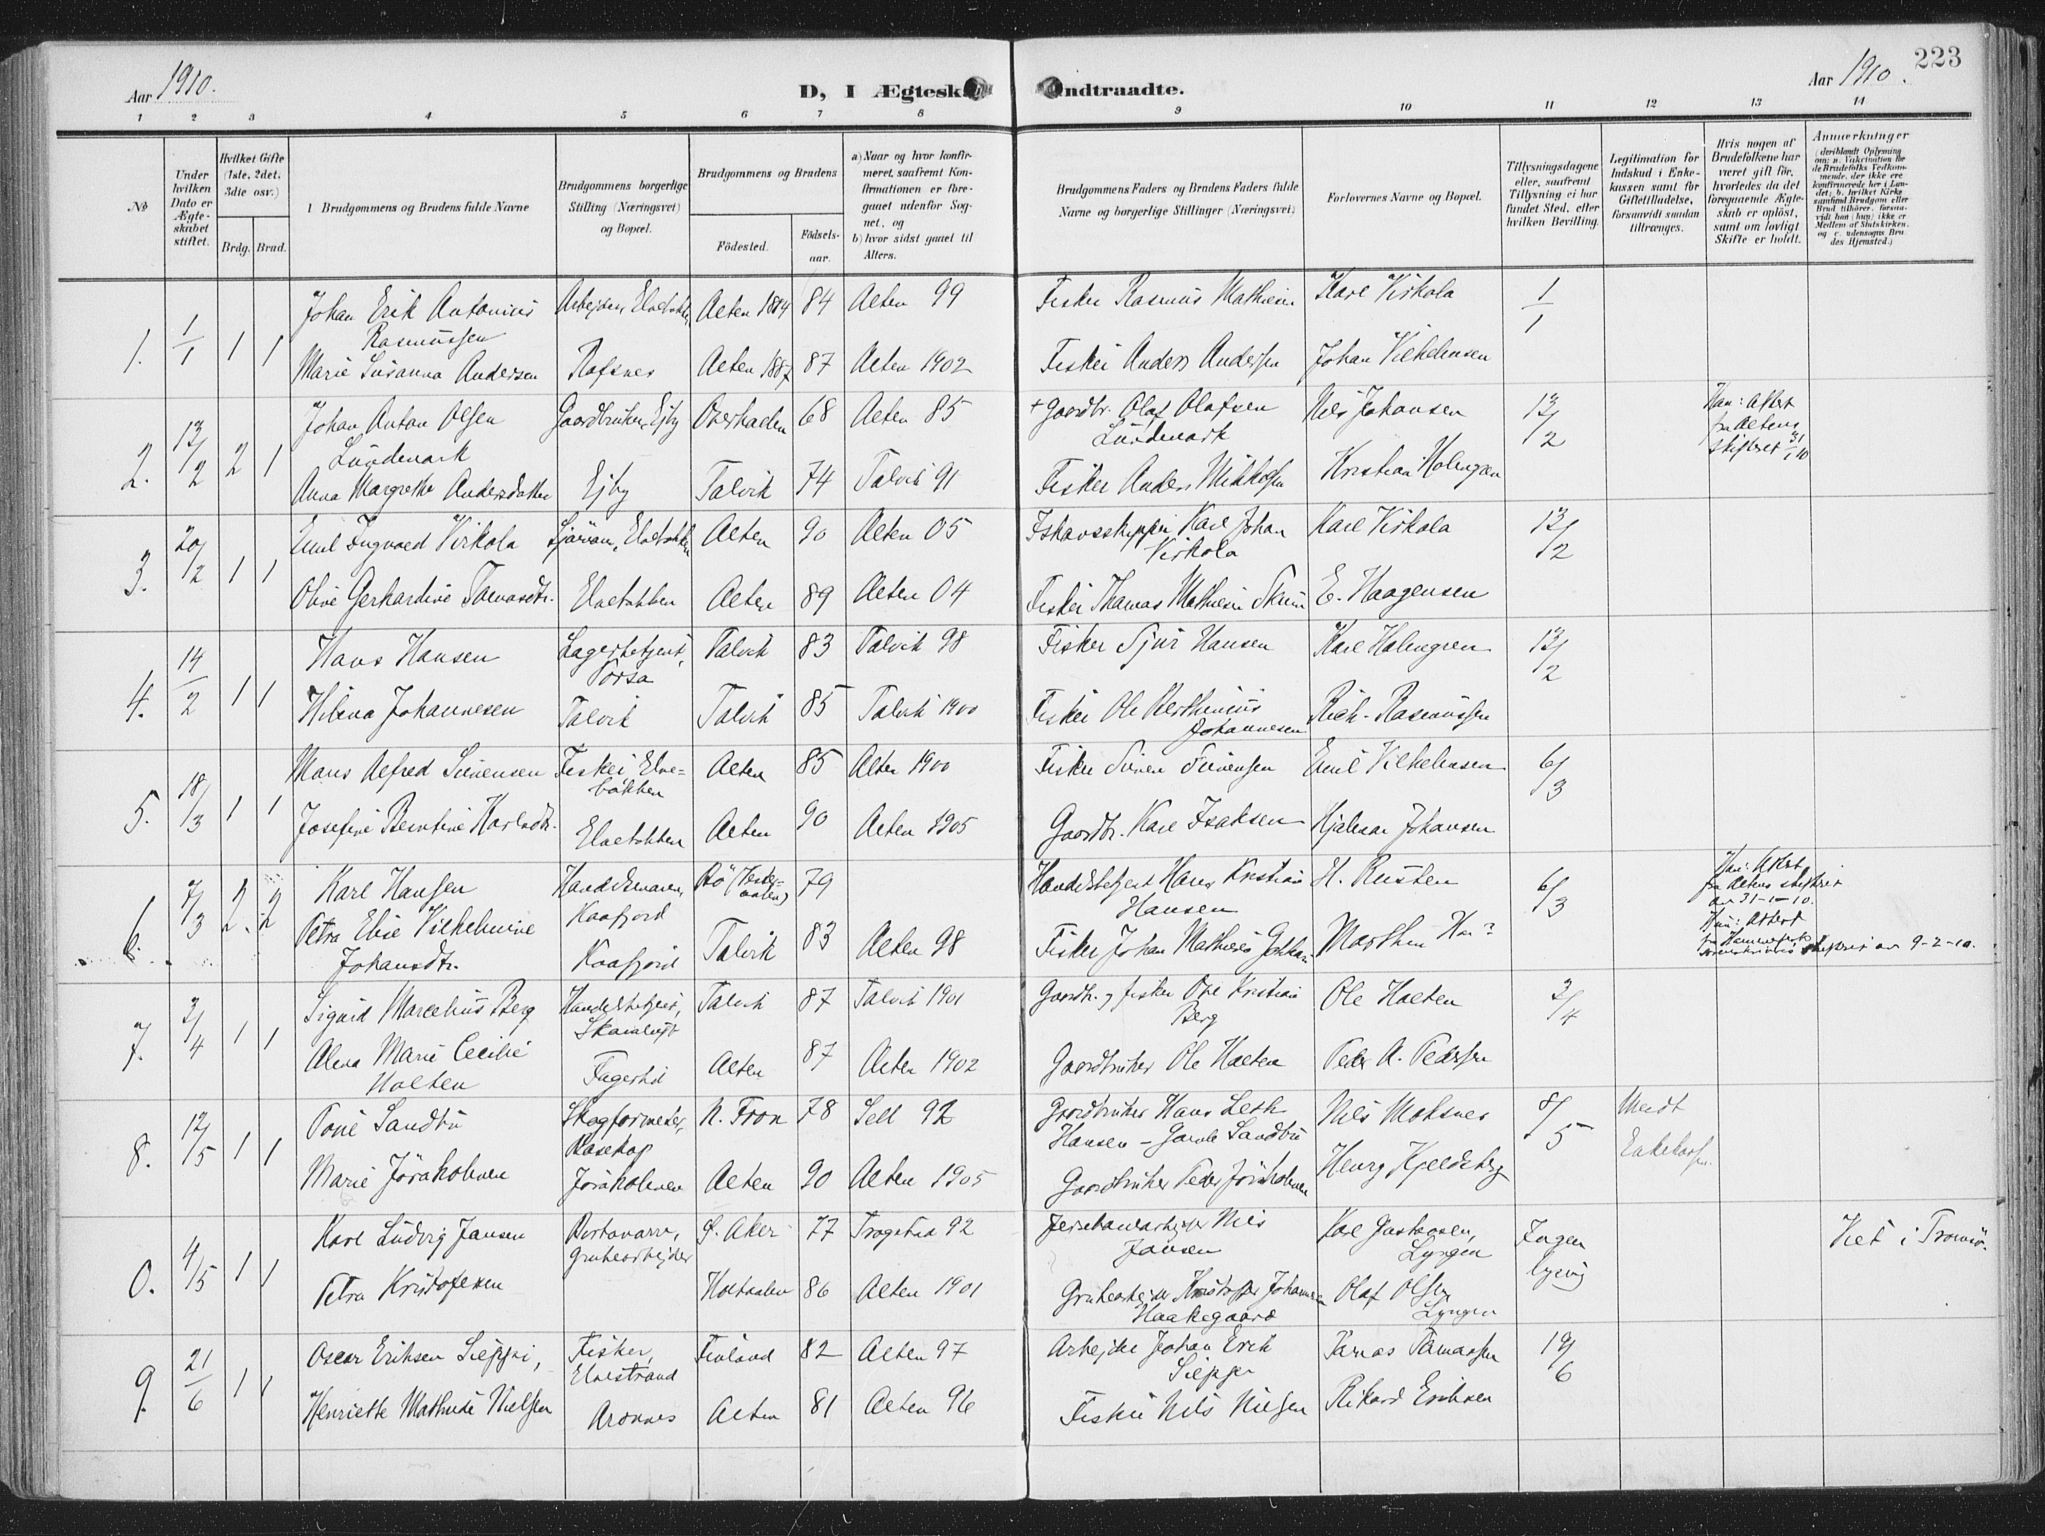 Aar 1910.
D, I Ægtesk
ndtraadte.
Aar 1910.
223
1 2 3 4 5 6 7 8 9 10 11 12 13 14
No
Under hvilken Dato er Ægteskabet stiftet.
Hvilket Gifte (1ste, 2det, 3die osv.)
Brdg. Brud.
Brudgommens og Brudens fulde Navne
Brudgommens borgerlige Stilling (Næringsvei) og Bopæl.
Brudgommens og Brudens
Födested.
Födsels-aar.
a) Naar og hvor konfirmeret, saafremt Konfirmationen er foregaaet udenfor Sognet, og
b) hvor sidst gaaet til Alters.
Brudgommens Faders og Brudens Faders fulde Navne og borgerlige Stillinger (Næringsvei)
Forlovernes Navne og Bopæl.
Tillysningsdagene eller, saafremt Tillysning ei har fundet Sted, efter hvilken Bevilling.
Legitimation for Indskud i Enkekassen samt for Giftetilladelse, forsaavidt saadan tiltrænges.
Hvis nogen af Brudefolkene har været gift før, hvorledes da det foregaaende Ægteskab er oplöst, samt om lovligt Skifte er holdt.
Anmærkninger
1. 1/1 1 1
Johan Erik Antonius Rasmussen
Arbejder, Elvebakken
Alten 1884 84 Alten 99
Fisker Rasmus Mathisen
Karl Virkola
1/1
Marie Susanna Andersen
Rafsnes
Alten 1887 87 Alten 1902
Fisker Anders Andersen
Johan Vilhelmsen
2. 13/2 2 1
Johan Anton Olsen Lundemark
Gaardbruker, Ejby
Overhalden 68 Alten 85
+ Gaardbr. Olaf Olafsen Lundemark
Nils Johansen
13/2
Han: Attest fra Altens skifteret 31/1 10
Anna Margrethe Andersdatter
Ejby
Talvik 74 Talvik 91
Fisker Anders Mikkelsen
Kristian Holmgren
3. 20/2 1 1
Emil Ingvald Virkola
Sjömann, Elvebakken
Alten 90 Alten 05
Ishavsskipper Karl Johan Virkola
Karl Virkola
13/2
Olive Gerhardine Tomasdtr.
Elvebakken
Alten 89 Alten 04
Fisker Thomas Mathisen Skum
E. Haagensen
4. 14/2 1 1
Hans Hansen
Lagerbetjent, Porsa
Talvik 83 Talvik 98
Fisker Sjur Hansen
Karl Holmgren
13/2
Hilma Johannesen
Talvik
Talvik 85 Talvik 1900
Fisker Ole Berthinius Johannesen
Rich. Rasmussen
5. 18/3 1 1
Mans Alfred Simensen
Fisker, Elvebakken
Alten 85 Alten 1900
Fisker Simen Simensen
Emil Vilhelmsen
6/3
Josefine Berntine Karlsdtr.
Elvebakken
Alten 90 Alten 1905
Gaardbr. Karl Isaksen
Hjalmar Johansen
6. 7/3 2 2
Karl Hansen
Kaafjord
Bö (Vesteraalen) 79
Handelsbetjent Hans Kristian Hansen
H. Rusten
6/3
Han: Attest fra Altens skifteret av 31-1-10.
Hun: Attest fra Hammerfests skifteret av 9-2-10.
Petra Elise Vilhelmine Johansdtr.
Kaafjord
Talvik 83 Alten 98
Fisker Johan Mathias
7. 3/4 1 1
Sigurd Marcelius Berg
Handelsbetjent,
Talvik 87 Talvik 1901
Gaardbr. og fisker Ole Kristian Berg
Ole Holten
3/4
Alma Marie Cecilie Holten
Alten 87 Alten 1902
Gaardbruker Ole Holten
Peder A. Pedersen
8. 12/5 1 1
Sandbu
Bosekop
N. Fron 78 Sell 92
Gaardbruker Hans
Hansen – Sandbu
Nils Moksnes
8/5
Meldt Enkekassen.
Marie Jöraholmen
Jöraholmen
Alten 90 Alten 1905
Gaardbruker Peder Jöraholmen
Henry Kjeldsberg
0. 4/5 1 1
Karl Ludvig Jansen
Bortavarre, Grubearbejder
Ö. Aker 77 Trögstad 92
Jernbanearbejder Nils Jansen
Karl Gustavsen, Lyngen
Ingen lysing
Viet i Tromsö.
Petra Kristofersen
Holtaalen 86 Alten 1901
Grubearbejder Kristoffer Johannesen Haakegaard
Olaf Olsen Lyngen
9. 21/6 1 1
Oscar Eriksen Sieppi,
Fisker, Elvestrand
Finland 82 Alten 97
Arbejder Johan Erik Sieppi
Tomas Tomassen
19/6
Henriette Mathilde Nielsen
Aronnes
Alten 81 Alten 96
Fisker Nils Nilsen
Rikard Eriksen